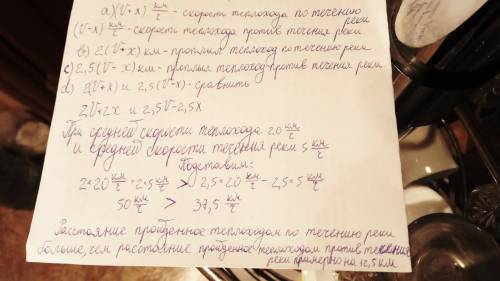 а) (V+x) км/г - скорость теплохода по течению реки
(V-x) км/г - скорость теплохода против течения реки.
в) 2(V+x) км - проплыл теплоход по течению реки
с) 2,5(V-x) км - проплыл теплоход против течения реки
d) 2(V+x) и 2,5(V-x) - сравнить
2V+2x и 2,5V-2,5x
При средней скорости теплохода 20 км/г
и средней скорости течения реки 5 км/г
Подставим:
2*20 км/г + 2*5 км/г > 2,5*20 км/г - 2,5*5 км/г
50 км/г > 37,5 км/г
Расстояние пройденное теплоходом по течению реки
больше, чем расстояние пройденное теплоходом против течения
реки примерно на 12,5 км